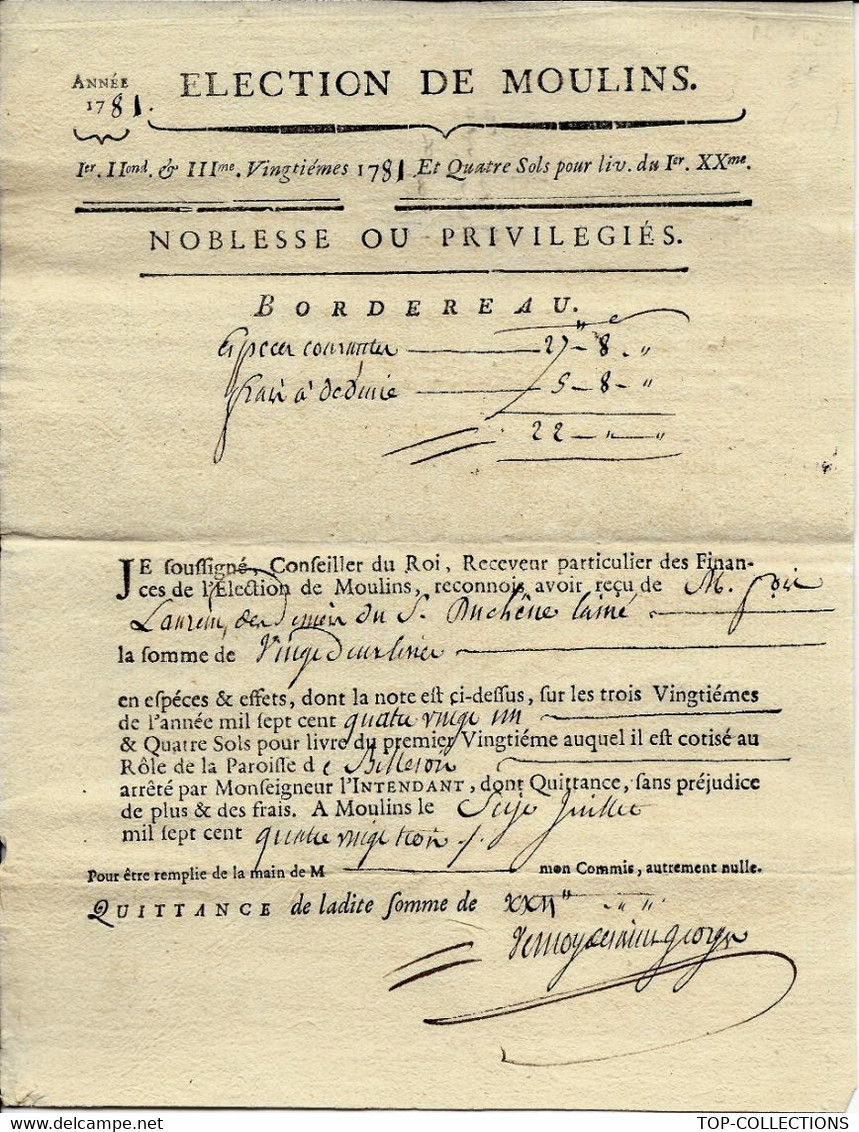 ANNÉE
1781.
ELECTION DE MOULINS.
Ier. IIond. & IIIme. Vingtiémes 1781 Et Quatre Sols pour liv. du Ier. XXme.
NOBLESSE OU PRIVILEGIÉS.
BORDEREAU.
Especes courantes 27 - 8 - "
frais à déduire 5 - 8 - "
22 - " - "
JE soussigné, Conseiller du Roi, Receveur particulier des Finan-
ces de l'Élection de Moulins, reconnois avoir reçu de M.
Laurent, du S. Duchêne lainé
la somme de Vingt Deux livres
en espéces & effets, dont la note est ci-dessus, sur les trois Vingtiémes
de l'année mil sept cent quatre vingt un
& Quatre Sols pour livre du premier Vingtiéme auquel il est cotisé au
Rôle de la Paroisse de
arrêté par Monseigneur l'INTENDANT, dont Quittance, sans préjudice
de plus & des frais. A Moulins le Seize Juillet
mil sept cent quatre vingt trois
Pour être remplie de la main de M mon Commis, autrement nulle.
QUITTANCE de ladite somme de XXII" " "
TOP-COLLECTIONS